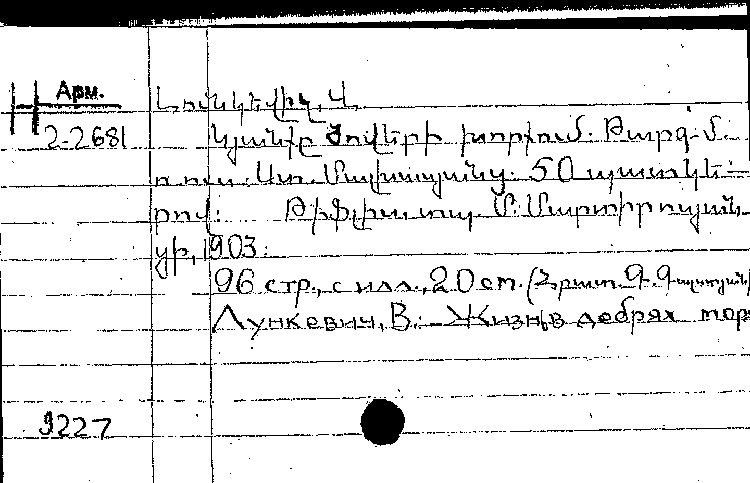 Арм.
2-2681
Լունկեվիչ, Վ.
Կյանքը ծովերի խորքում: Թարգ. Մ.
ռուս. Ստ. Մալխասյանց. 50 պատկե-
րով: Թիֆլիս, տպ. Մ. Մարտիրոսյան-
ցի, 1903.
96 стр., с илл., 20 cm. (Հրատ.
Лункевич, В.: Жизнь в дебрях мор
9227